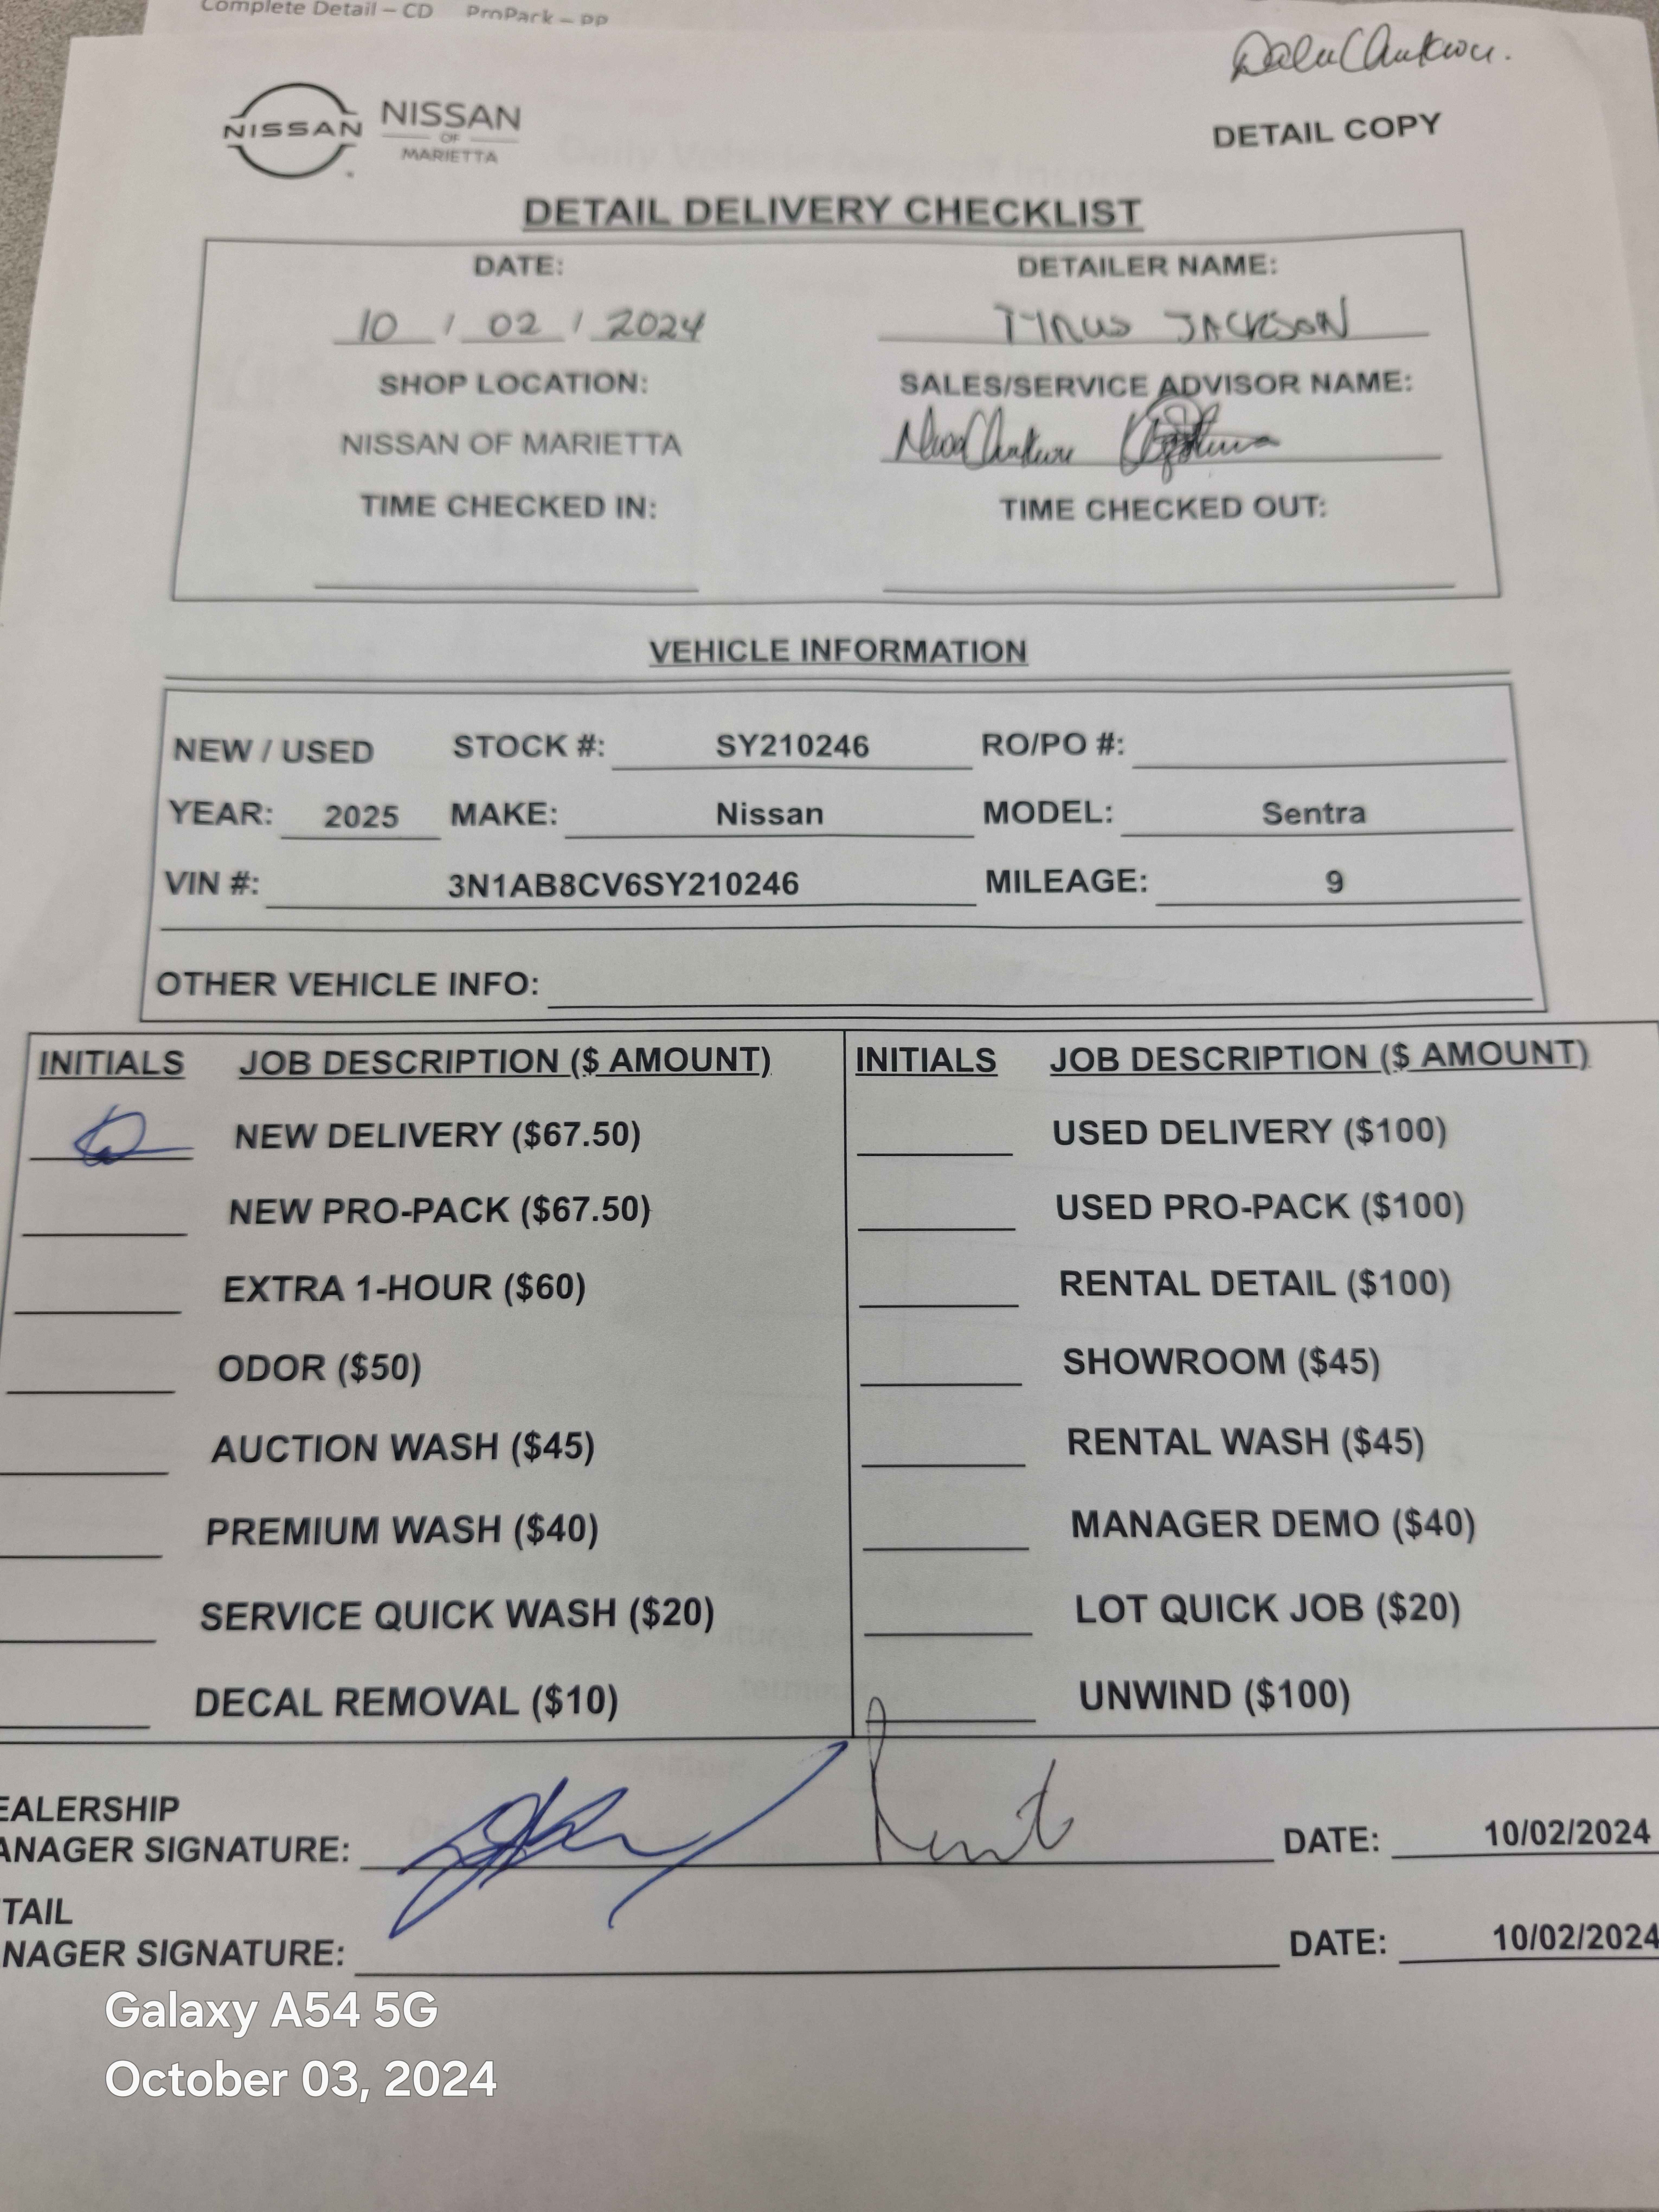 Complete Detail – CD ProPack – PP
NISSAN
NISSAN
OF
MARIETTA
DETAIL COPY
DETAIL DELIVERY CHECKLIST
DATE: DETAILER NAME:
10 / 02 / 2024 TYRUS JACKSON
SHOP LOCATION: SALES/SERVICE ADVISOR NAME:
NISSAN OF MARIETTA
TIME CHECKED IN: TIME CHECKED OUT:
VEHICLE INFORMATION
NEW / USED STOCK #: SY210246 RO/PO #:
YEAR: 2025 MAKE: Nissan MODEL: Sentra
VIN #: 3N1AB8CV6SY210246 MILEAGE: 9
OTHER VEHICLE INFO:
INITIALS JOB DESCRIPTION ($ AMOUNT) INITIALS JOB DESCRIPTION ($ AMOUNT)
NEW DELIVERY ($67.50) USED DELIVERY ($100)
NEW PRO-PACK ($67.50) USED PRO-PACK ($100)
EXTRA 1-HOUR ($60) RENTAL DETAIL ($100)
ODOR ($50) SHOWROOM ($45)
AUCTION WASH ($45) RENTAL WASH ($45)
PREMIUM WASH ($40) MANAGER DEMO ($40)
SERVICE QUICK WASH ($20) LOT QUICK JOB ($20)
DECAL REMOVAL ($10) UNWIND ($100)
EALERSHIP
ANAGER SIGNATURE: DATE: 10/02/2024
TAIL
NAGER SIGNATURE: DATE: 10/02/2024
Galaxy A54 5G
October 03, 2024